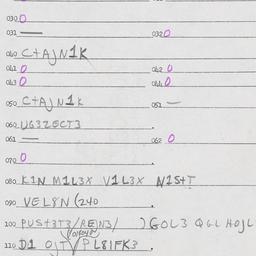 030 0
031 — 032 0
040 C+AJN1K
041 0 042 0
043 0 044 0
050 C+AJN1K 051 —
060 UG3ZECT3
061 — 062 0
070 0
080 K1N M1L3X V1L3X N1S+T
090 VEL8N (240
100 PUS+3T3/REIN3/ )GOL3 QGL HOJL
110 D1 OJT PL81FK3